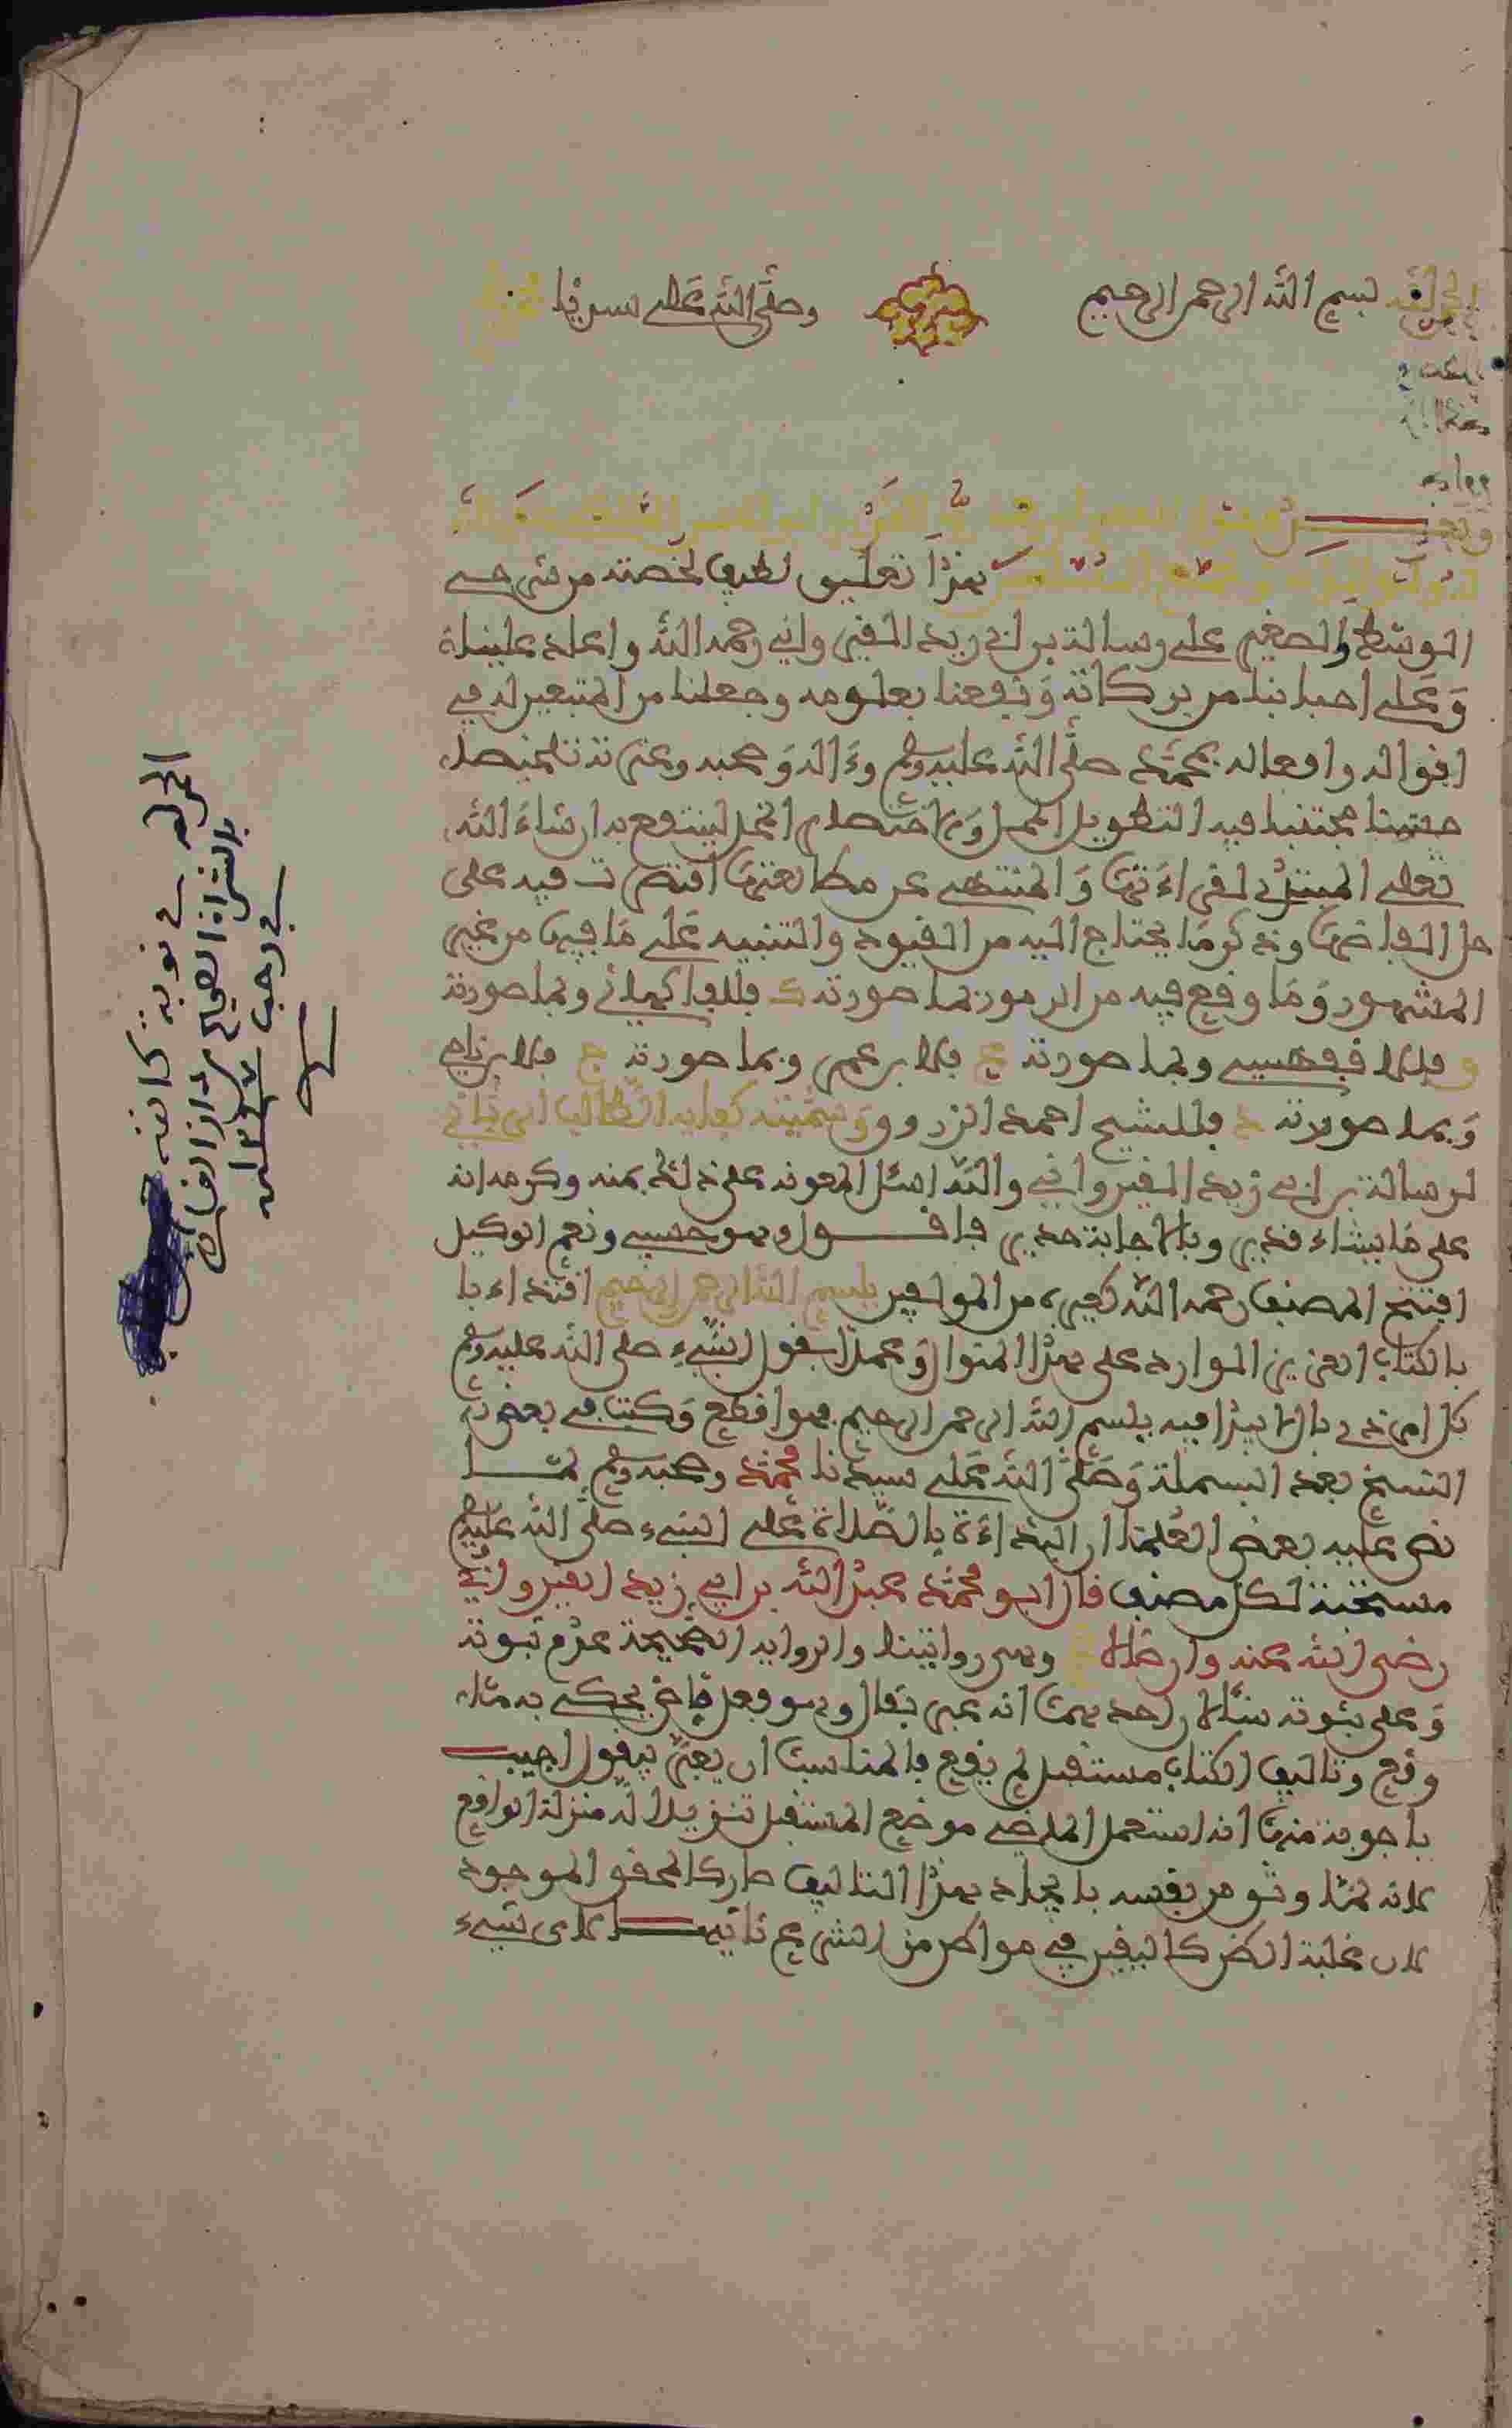 الحمد لله بسم الله الرحمن الرحيم وصلى الله على سيدنا محمد
هذا تعليق لطيف لخصته من شرحي
الوسط والصغير على رسالة بن ابي زيد القيرواني رحمه الله واعاد علينا
وَعَلى احبابنا من بركاته وَنفعنا بعلومه وجعلنا من المتبعين له في
اقواله وافعاله بمحمَّد صلَّى الله عليه وسلم وءَاله وَصحبه وعترته تلخيصا
حسنا مجتنبا فيه التطويل الممل وَالاختصار المخل لينتفع به ان شاءَ الله
تعلى المبتدئ لقراءَتها وَالمنتهى عن مطالعتها اقتصرت فيه على
حل الفاظها وذكر مَا يحتاج اليه من القيود والتنبيه عَلى مَا فيها من غير
المشهور وَمَا وقع فيه من الرموز بما صورته ك فللفاكهاني وبما صورته
ق فللاقفهسي وبما صورته ع فلابن عمر وبما صورته ج فلابن ناجي
وَبما صورته د فللشيخ احمد الزروق وَسميته كفاية الطالب الرباني
لرسالة بن ابي زيد القيرواني والله اسئل المعونة على ذلك بمنه وكرمه انه
على مَا يشاء قدير وبالاجابة جدير فاقول وهو حسبي ونعم الوكيل
افتتح المصنف رحمه الله كغيره من المؤلفين ببسم الله الرحمن الرحيم اقتداء با
بالكتاب العزيز الوارد على هذا المنوال وَعملا بقول النبيء صلى الله عليه وسلم
كل امر ذي بال لا يبدا فيه ببسم الله الرحمن الرحيم فهو اقطع وَكتب في بعض
النسخ بعد البسملة وَصَلَّى الله عَلى سيدنا محمَّد وصحبه وسلم لما
نص عليه بعض العُلمَا ان البداءَة بالصَّلاة عَلى النبيء صلَّى الله عليه وسلم
مستحبة لكل مصنف قال ابو محمَّد عبد الله بن ابي زيد القيرواني
رضي الله عنه وارضاه وهي روايتنا والرواية الصحيحة عدم ثبوته
وَعلى ثبوته سئالان احدهما انه عبر بقال وهو فعل مَاضٍ يحكى به مَا
وقع وتاليف الكتاب مستقبل لم يقع فالمناسب ان يعبر بيقول اجيب
باجوبة منها انه استعمل الماضي موضع المستقبل تنزيلا له منزلة الواقع
لانه لما وثق من نفسه بايجاد هذا التاليف صار كالمحقق الموجود
لان غلبة الظن كاليقين في مواطن من الشرع ثانيهما لاى شيء
الحمد لله في نوبة كاتبه
بالشراء الصحيح
في رجب